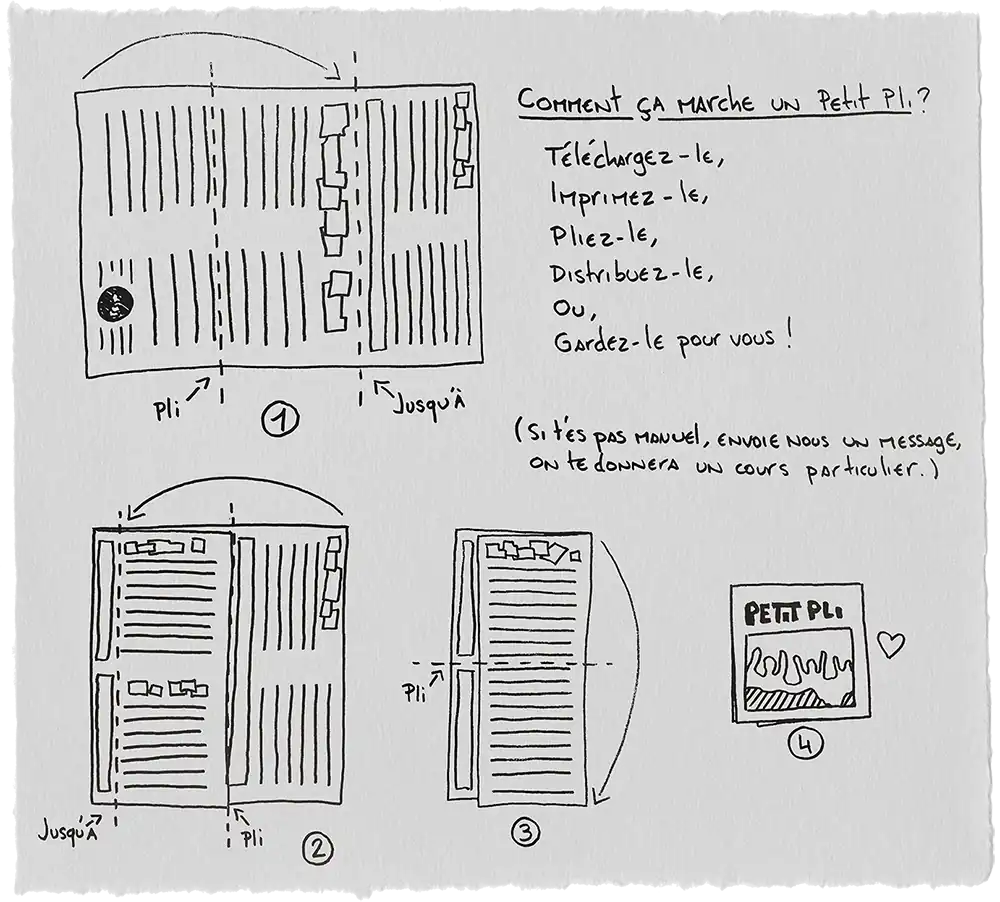 Comment ça marche un Petit Pli ?
Téléchargez-le,
Imprimez-le,
Pliez-le,
Distribuez-le,
Ou,
Gardez-le pour vous !
Pli
1
Jusqu'à
(Si t'es pas manuel, envoie nous un message,
on te donnera un cours particulier.)
Jusqu'à
Pli
2
Pli
3
PETIT PLI
4